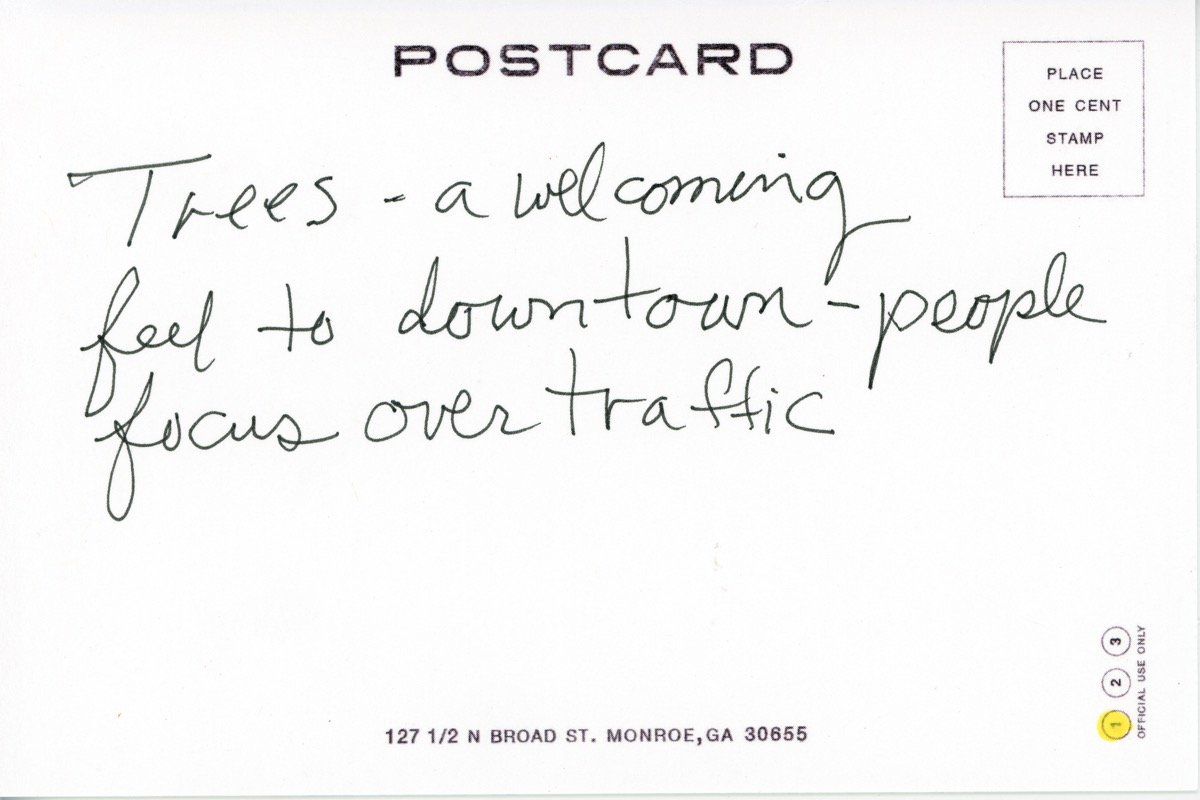 POSTCARD
PLACE
ONE CENT
STAMP
HERE
Trees - a welcoming
feel to downtown - people
focus over traffic
127 1/2 N BROAD ST. MONROE, GA 30655
1 2 3
OFFICIAL USE ONLY